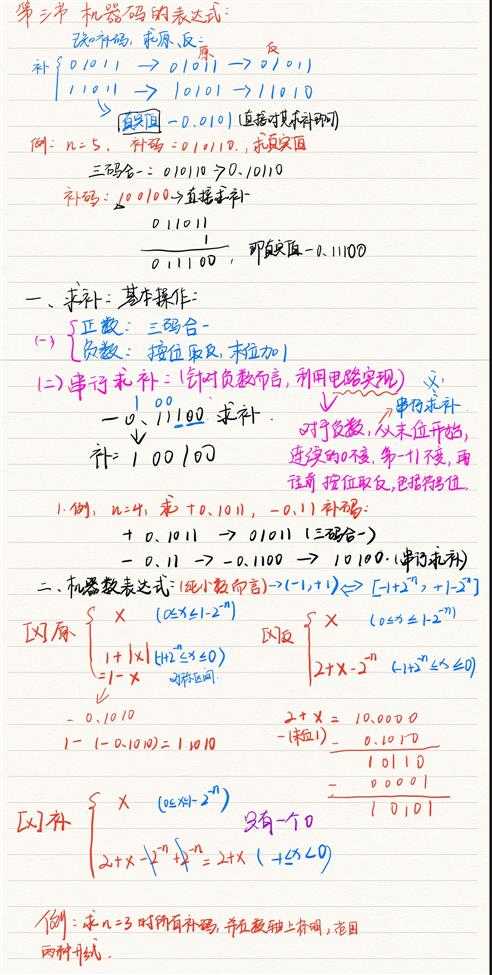 第三节 机器码的表达式：
已知补码，求原、反：
原 反
补 { 01011 → 01011 → 01011
11011 → 10101 → 11010
真值 -0.0101 (直接对其求补即可)
例：n=5, 补码=010110, 求真值
三码合一：010110 → 0.10110
补码：100100 → 直接求补
011011
1
011100, 即真值 -0.11100
一、求补：基本操作：
(一) { 正数：三码合一
负数：按位取反，末位加1
(二) 串行求补：(针对负数而言，利用电路实现)
1 00
-0.11100 求补
串行求补
对于负数，从末位开始，
补：100100
连续的0不变，第一个1不变，再
往前按位取反，包括符号位.
1. 例，n=4, 求 +0.1011, -0.11 补码：
+0.1011 → 01011 (三码合一)
-0.11 → -0.1100 → 10100. (串行求补)
二、机器数表达式：(纯小数而言) → (-1,+1) ⇔ [-1+2⁻ⁿ, +1-2⁻ⁿ]
[X]原 { X (0≤x≤1-2⁻ⁿ)
1+|X| (-1+2⁻ⁿ≤x≤0)
=1-x 对称区间
[X]反 { X (0≤x≤1-2⁻ⁿ)
2+x-2⁻ⁿ (-1+2⁻ⁿ≤x≤0)
-0.1010
1-(-0.1010)=11010
2+x = 10.0000
-(末位1) - 0.1010
10110
- 00001
10101
[X]补 { X (0≤x≤1-2⁻ⁿ)
只有一个0
2+x-2⁻ⁿ+2⁻ⁿ=2+x (-1≤x<0)
例：求n=3时所有补码，并在数轴上标明，范围
两种形式.